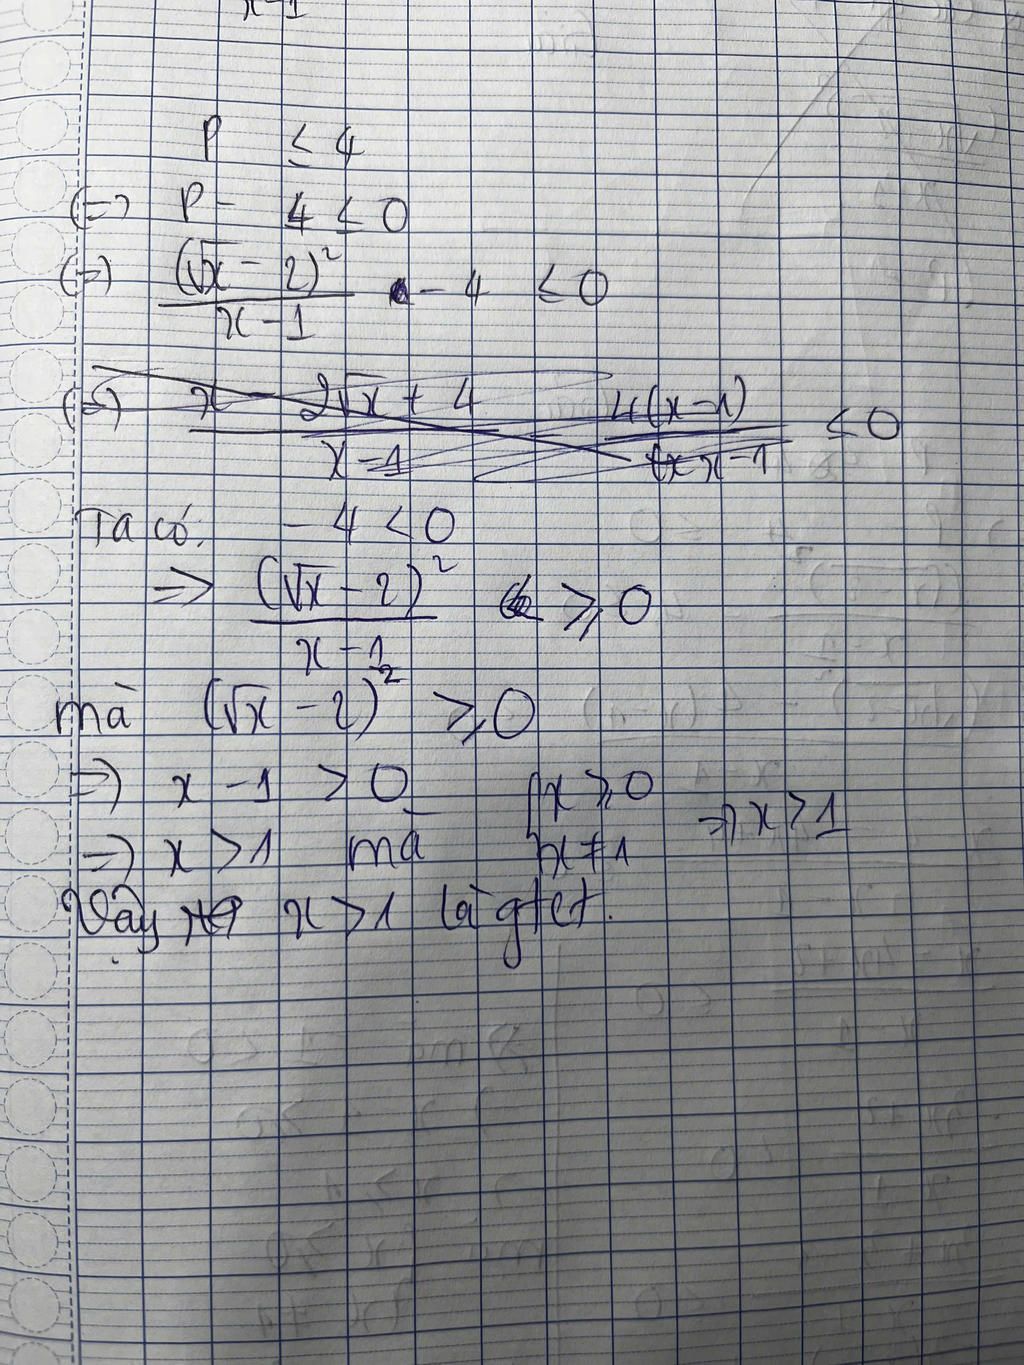 x-1
P ≤ 4
(=) P - 4 ≤ 0
(=) (√x - 2)² / x - 1 - 4 ≤ 0
(=) x - 2√x + 4 / x - 1 4(x-1) / x-1 ≤ 0
Ta có: - 4 < 0
=> (√x - 2)² / x - 1 ≥ 0
mà (√x - 2)² ≥ 0
=) x - 1 > 0 { x ≥ 0
=) x > 1 mà x ≠ 1 => x > 1
Vậy x > 1 là gtct.